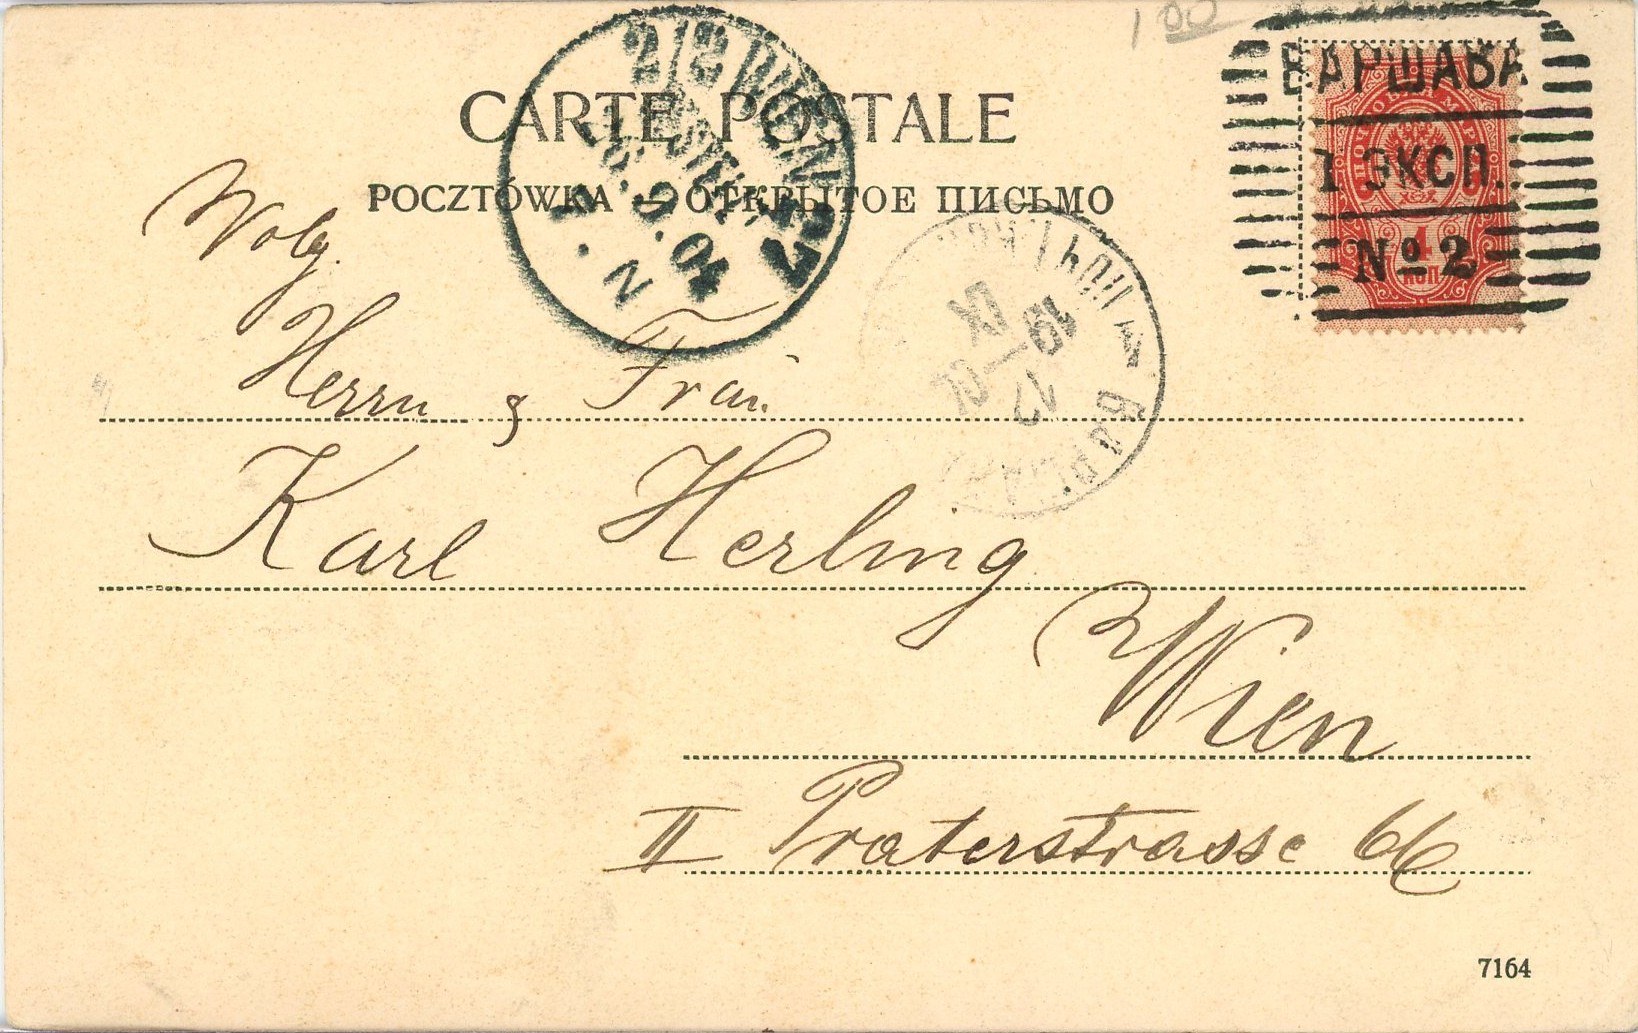 100
CARTE POSTALE
POCZTÓWKA – ОТКРЫТОЕ ПИСЬМО
2/2 WIEN
18.9.04
N.
ВАРШАВА
I ЭКСП.
№ 2
4
КОП
19 IX
Wolg.
Herrn & Frau
Karl Herling
Wien
II Praterstrasse 66
7164